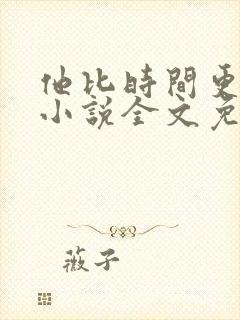 他比時間更
小說全文免
薇子